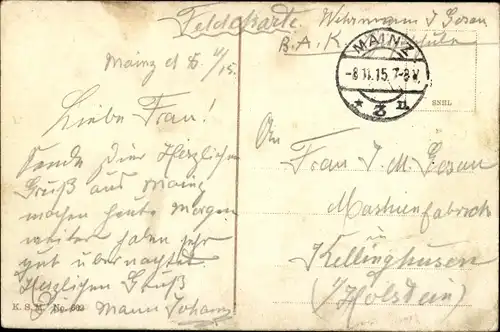 Feldkarte. Wehrmann J Gosau
B.A.K.
MAINZ
-8.11.15. 7-8 V.
* 3 n
Mainz d 8. 11/15.
Liebe Frau!
Sende dier Herzlichen
Gruß aus Mainz
machen heute Morgen
weiter haben sehr
gut übernachtet.
Herzlichen Gruß
Dein Mann Johann
K. S. M. No.
An
Frau J. M. Gosau
Mashienfabrick
in
Kellinghusen
(i/Holstein)